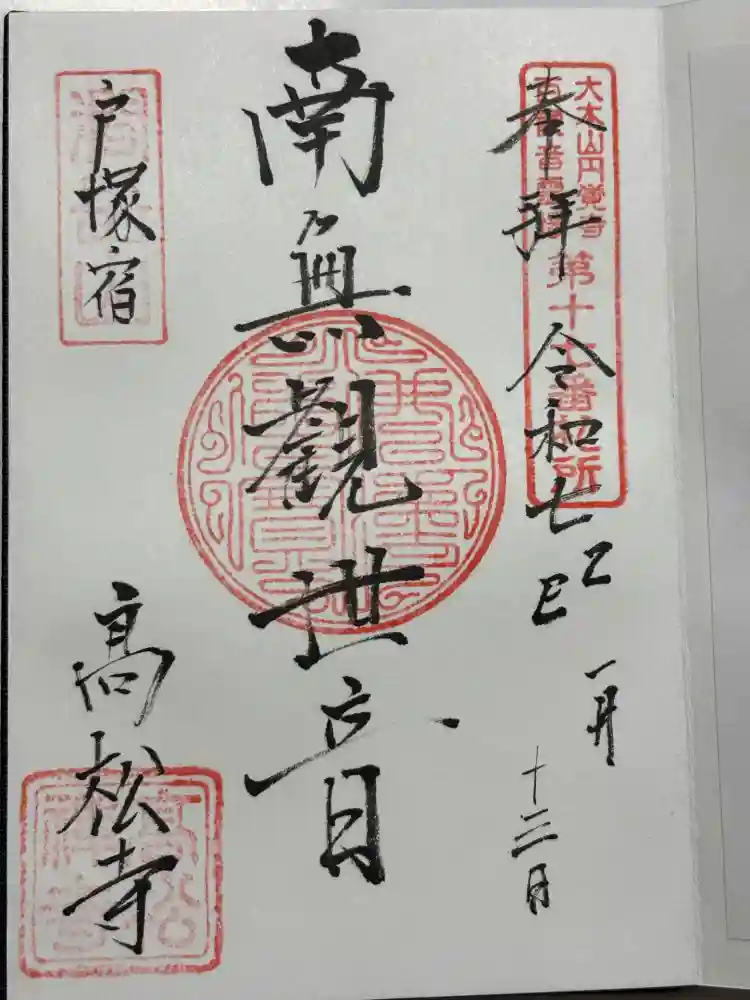 大本山円覚寺
百観音霊場
第十七番札所
奉拝
令和七
乙巳
一月
十三日
南無觀世音
戸塚宿
高松寺